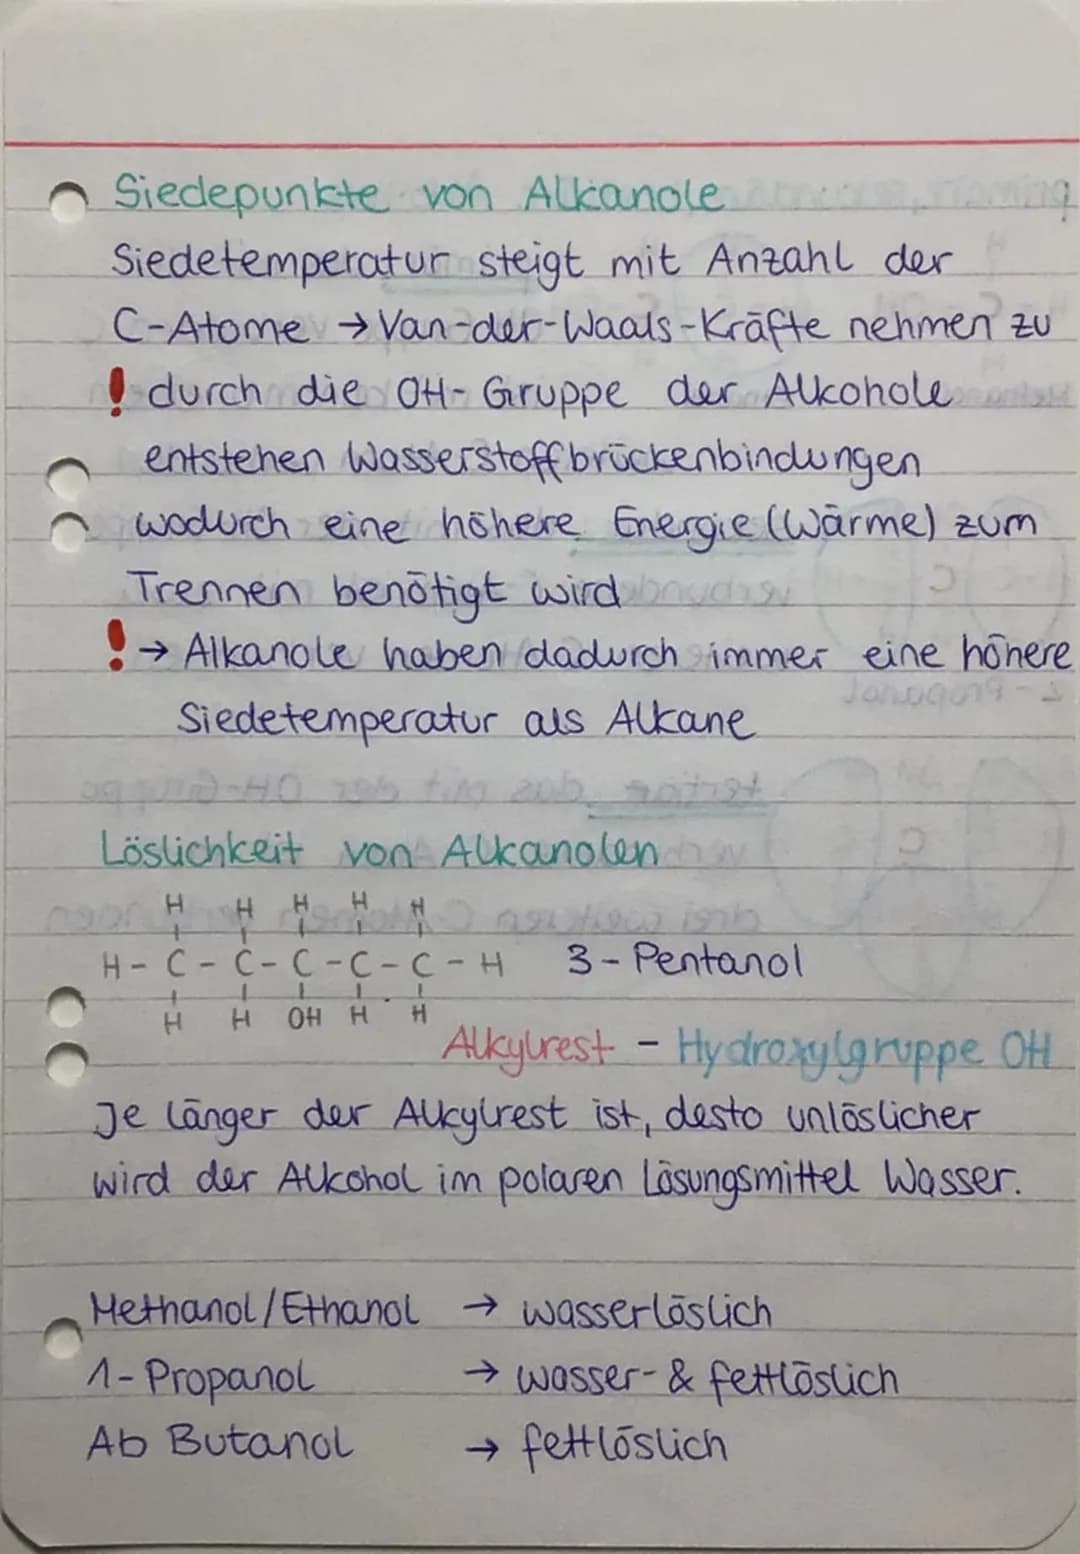 Siedepunkte von Alkanole
Siedetemperatur steigt mit Anzahl der
C-Atome → Van-der-Waals-Kräfte nehmen zu
! durch die OH-Gruppe der Alkohole
entstehen Wasserstoffbrückenbindungen
wodurch eine höhere Energie (Wärme) zum
Trennen benötigt wird
! → Alkanole haben dadurch immer eine höhere
Siedetemperatur als Alkane
Löslichkeit von Alkanolen
H H H H H
H-C-C-C-C-C-H 3-Pentanol
H H OH H H
Alkylrest - Hydroxylgruppe OH
Je länger der Alkylrest ist, desto unlöslicher
wird der Alkohol im polaren Lösungsmittel Wasser.
Methanol/Ethanol → wasserlöslich
1-Propanol → wasser- & fettlöslich
Ab Butanol → fettlöslich